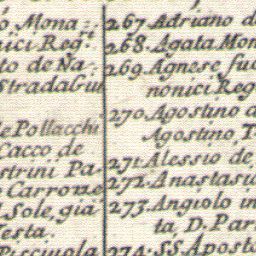 Mona:
nici Reg:
to de Na:
Stradagui
e Pollacchi
Cacco, de
strini Pa-
o Carrove
Sole, già
Testa.
Pisciuola
267. Adriano d
268. Agata Mon
269. Agnese fuo
nonici Reg
270. Agostino d
Agostino, T
271. Alessio de
272. Anastasia
273. Angiolo in
ta, D. Par
274. SS. Apost